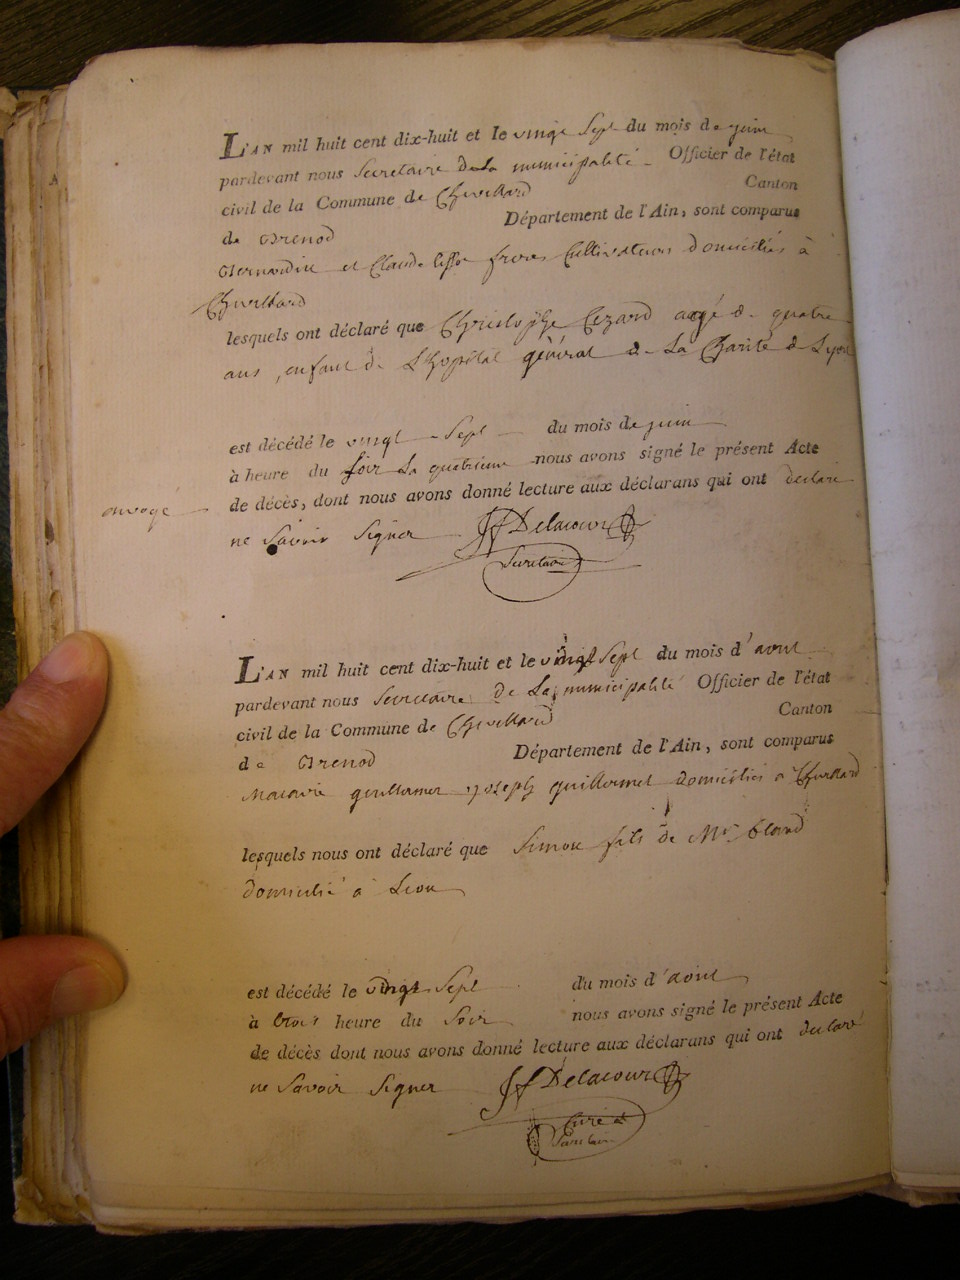 L'AN mil huit cent dix-huit et le vingt Sept du mois de juin
pardevant nous Secretaire de La municipalité Officier de l'état
civil de la Commune de Chevillard Canton
de Brenod Département de l'Ain, sont comparus
Bernardin et Claude frères Cultivateurs domiciliés à
Chevillard
lesquels ont déclaré que Christophe Cezard agé de quatre
ans, enfant de L'hopital général de La Charité de Lyon
est décédé le vingt Sept du mois de juin
à heure du Soir La quatrieme nous avons signé le présent Acte
de décès, dont nous avons donné lecture aux déclarans qui ont declaré
envoyé
ne Savoir Signer JfDelacour
Secretaire
L'AN mil huit cent dix-huit et le vingt Sept du mois d'avril
pardevant nous Secretaire de La municipalité Officier de l'état
civil de la Commune de Chevillard Canton
de Brenod Département de l'Ain, sont comparus
guillermet joseph guillermet domiciliés a Chevillard
lesquels nous ont déclaré que Simon fils de Mr
domicilié a Lion
est décédé le vingt Sept du mois d'avril
à trois heure du Soir nous avons signé le présent Acte
de décès dont nous avons donné lecture aux déclarans qui ont declaré
ne Savoir Signer JfDelacour
Curé et
Secretaire